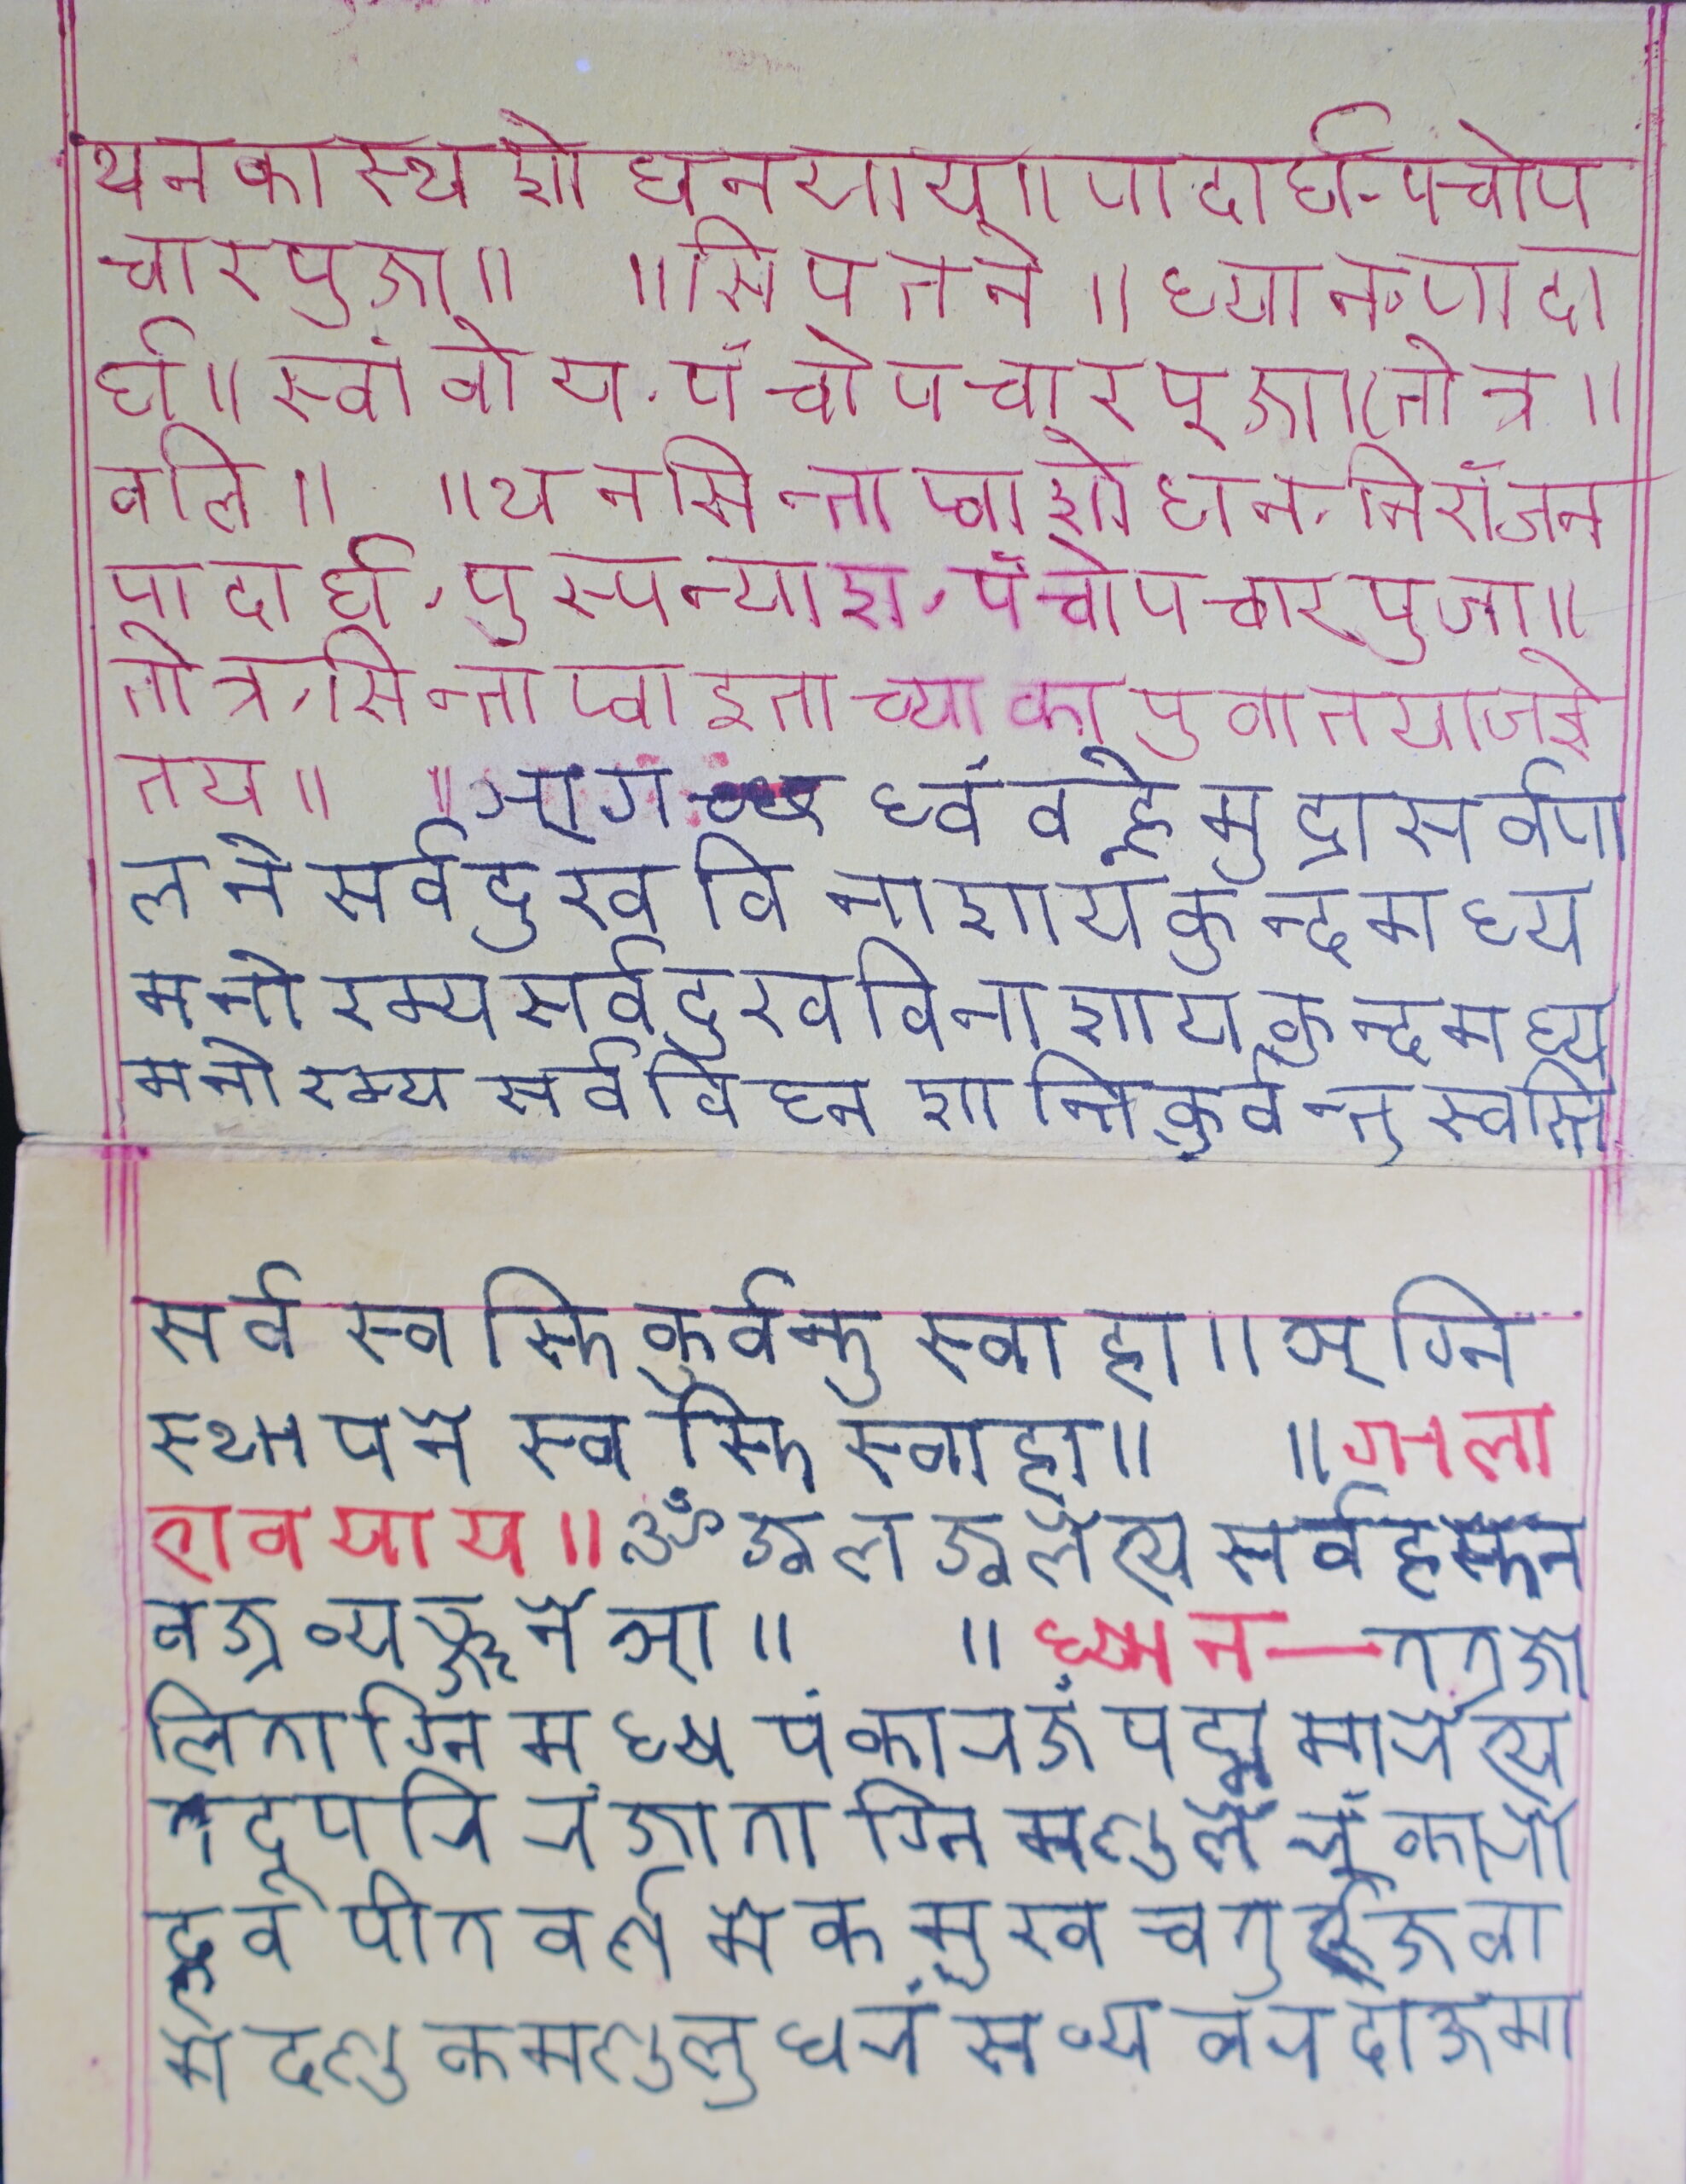 थनकास्थ शोधनयाय॥ पादार्घ-पंचोप
चारपुजा॥ ॥सिपतने॥ ध्यान-पादा
र्घ॥ स्वांवोय-पंचोपचारपूजा॥तोत्र॥
वलि॥ ॥थनसिन्ताप्वाशोधन-निरांजन
पादार्घ-पुस्पन्याश-पंचोपचारपुजा॥
तोत्र-सिन्ताप्वाइताच्याका पुवातयाजज्ञे
तय॥ ॥आगच्छ ध्वं वह्नेमुद्रासर्वपा
लने सर्वदुखविनाशायकुन्दमध्य
मनोरम्यसर्वदुखविनाशायकुन्दमध्य
मनोरम्य सर्वविघ्नशान्तिकुर्वन्तु स्वस्ति
सर्व स्वस्ति कुर्वन्तु स्वाहा॥ अग्नि
स्थापने स्वस्ति स्वाहा॥ ॥ग्वाला
रावयाय॥ ॐ ज्वल ज्वलेत्य सर्वहस्तेन
वज्रव्यञ्जने आ॥ ॥ध्यान— ततज्वा
लिताग्निमध्य पंकारजं पद्म मारेत्य
तदूपरि रंजाताग्नि मण्डले रूंकारो
द्भवं पीतवर्ण मेकमुख चतुर्भुजवा
मे दण्डकमण्डलुधरं सव्य वरदाऊमा